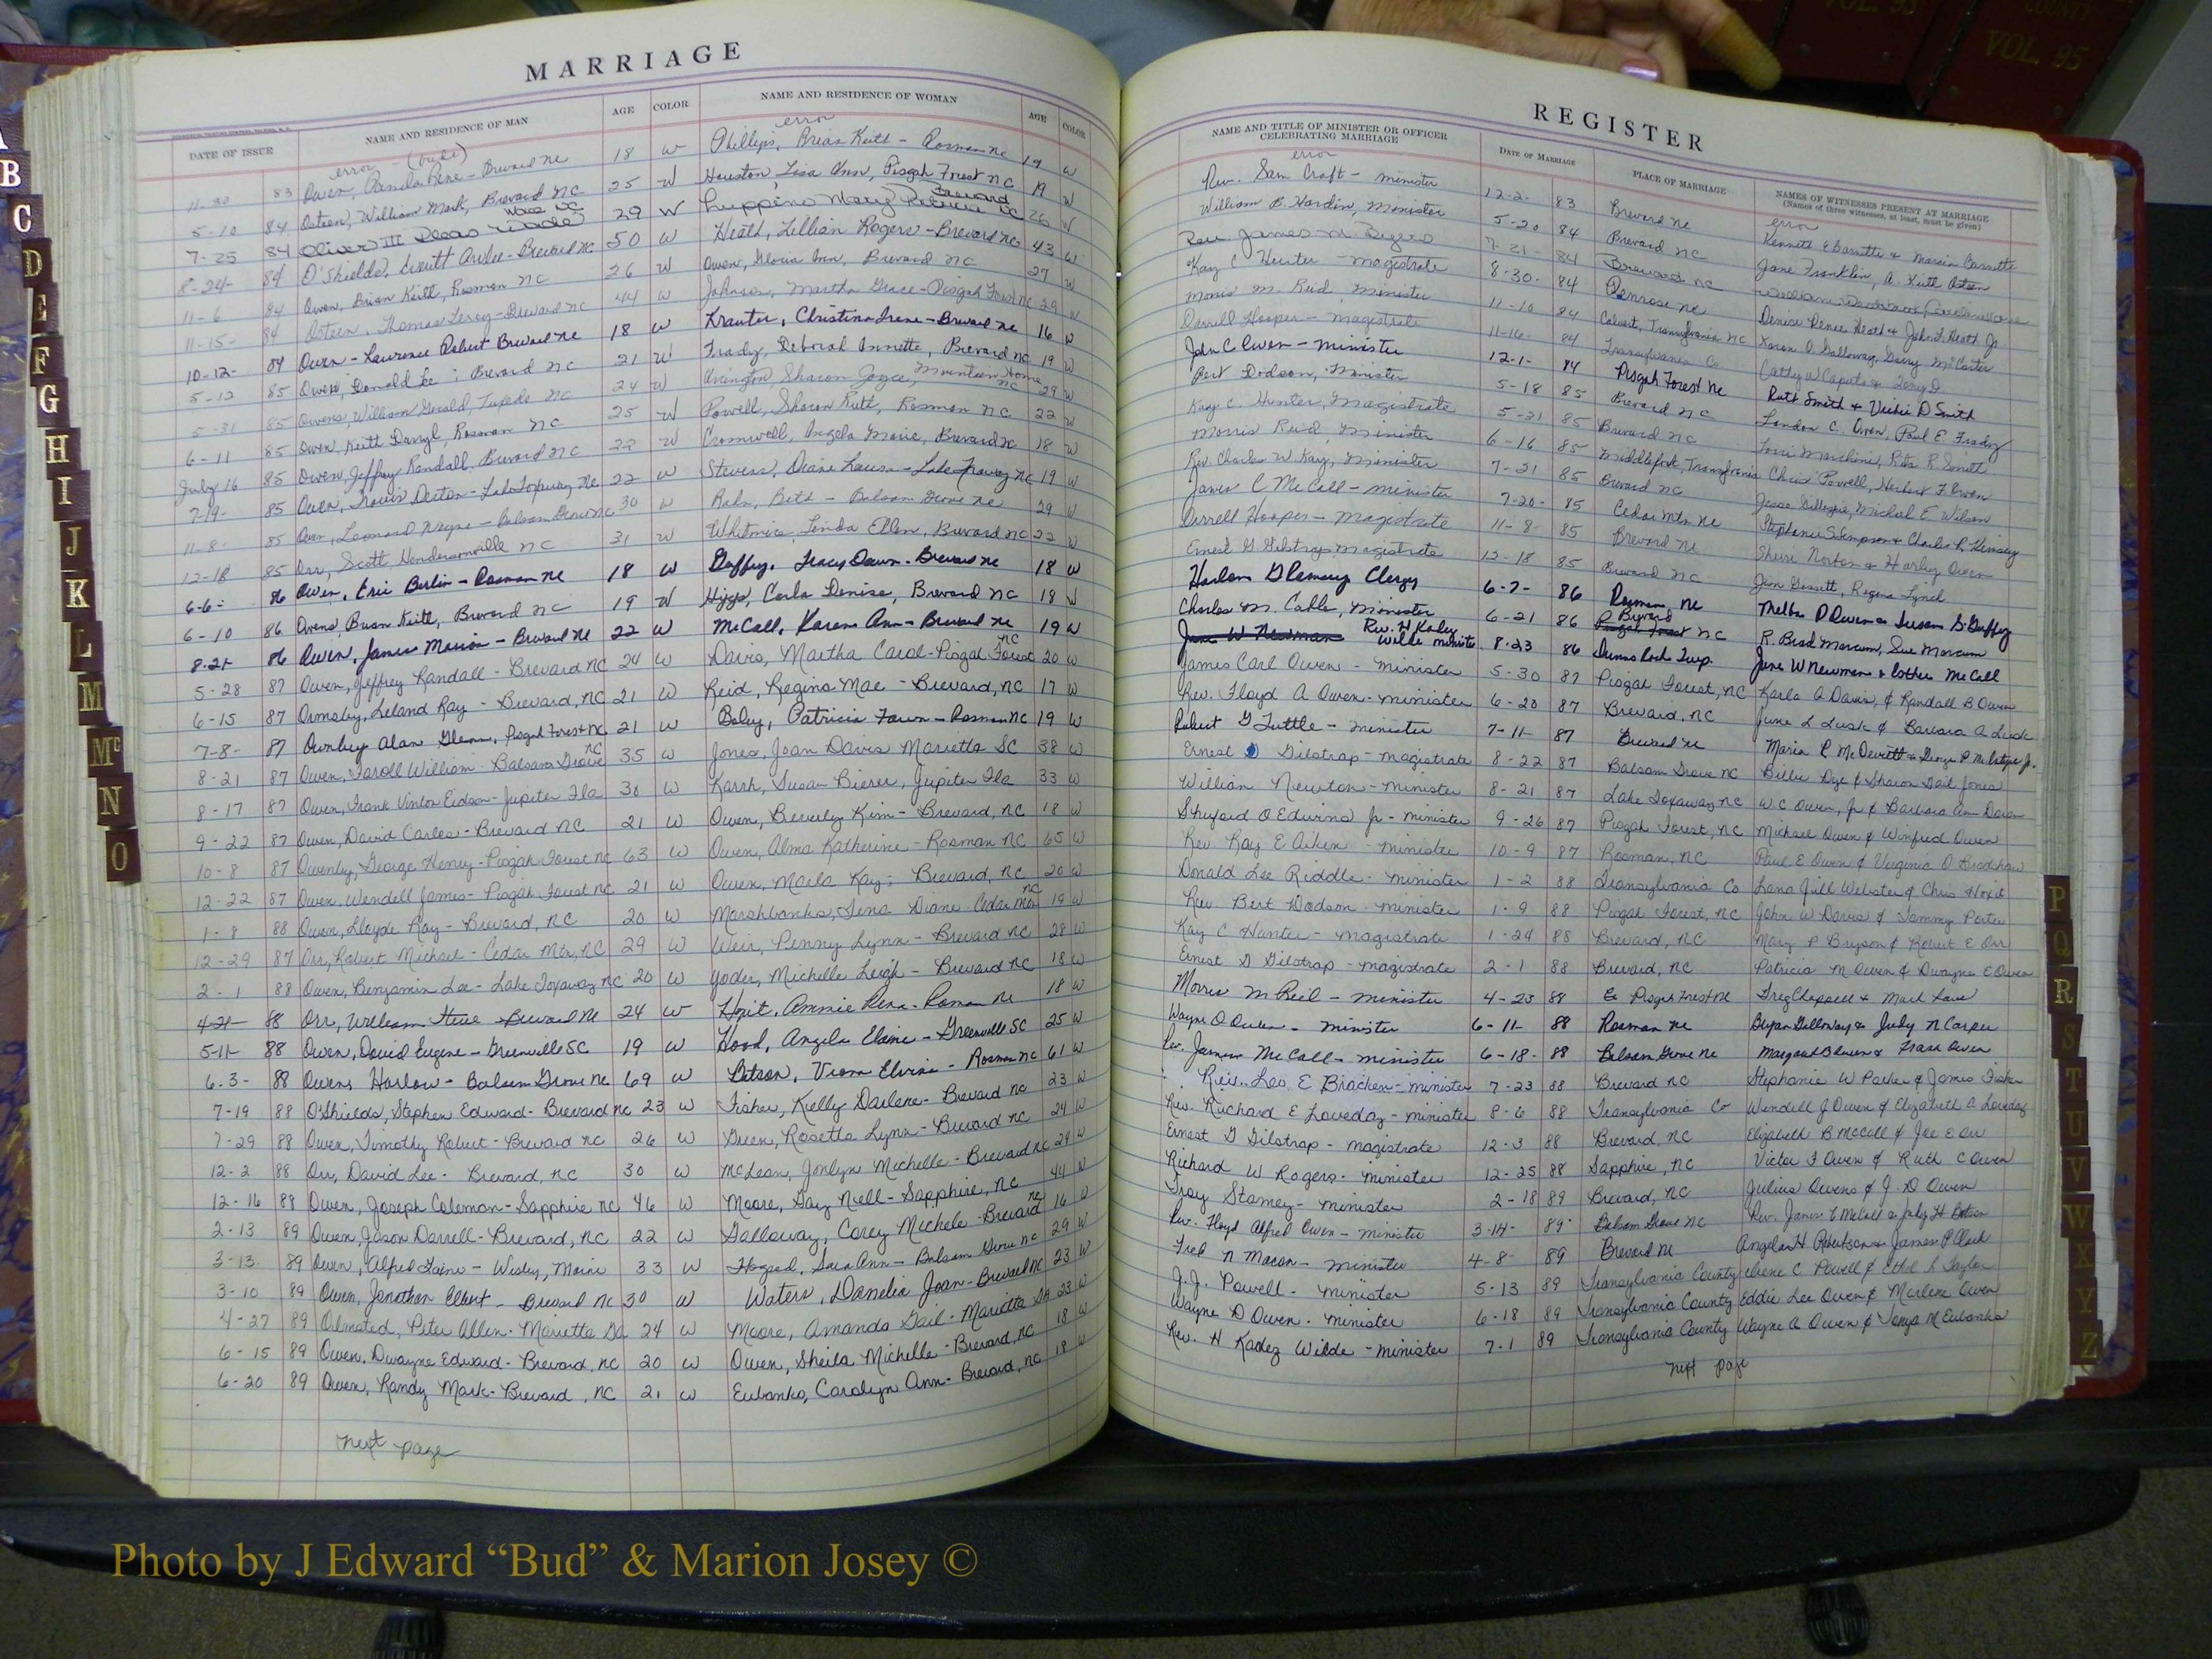 MARRIAGE
DATE OF ISSUE NAME AND RESIDENCE OF MAN AGE COLOR NAME AND RESIDENCE OF WOMAN AGE COLOR
error - (bride) error
11-30 83 Owen, Pamela Rene - Brevard NC 18 W Phillips, Brian Keith - Rosman NC 19 W
5-10 84 Osteen, William Mark, Brevard NC 25 W Houston, Lisa Ann, Pisgah Forest NC 19 W
7-25 84 Oliver III 29 W Luppino Mary Brevard NC 26 W
8-24- 84 O'Shields, Averitt - Brevard NC 50 W Heath, Lillian Rogers - Brevard NC 43 W
11-6 84 Owen, Brian Keith, Rosman NC 26 W Owen, Gloria Ann, Brevard NC 27 W
11-15- 84 Osteen, Thomas Leroy - Brevard NC 44 W Johnson, Martha Grace - Pisgah Forest NC 29 W
10-12- 84 Owen - Lawrence Robert Brevard NC 18 W Krauter, Christina Irene - Brevard NC 16 W
5-12 85 Owen, Donald Lee, Brevard NC 21 W Frady, Deborah Annette, Brevard NC 19 W
5-31 85 Owens, William Gerald, Tuxedo NC 24 W Sharon Joyce, Mountain Home NC 29 W
6-11 85 Owen, Keith Darryl, Rosman NC 25 W Powell, Sharon Ruth, Rosman NC 22 W
July 16 85 Owen, Jeffrey Randall, Brevard NC 22 W Cromwell, Angela Marie, Brevard NC 18 W
7-19- 85 Owen, Travis - Lake Toxaway NC 22 W Stevens, Diane - Lake Toxaway NC 19 W
11-8- 85 Owen, Leonard Wayne - Balsam Grove NC 30 W Beth - Balsam Grove NC 29 W
12-18 85 Orr, Scott Hendersonville NC 31 W Whitmire, Linda Ellen, Brevard NC 22 W
6-6- 86 Owen, Eric Berlin - Rosman NC 18 W Guffey, Tracy Dawn - Brevard NC 18 W
6-10 86 Owens, Brian Keith, Brevard NC 19 W Higgs, Carla Denise, Brevard NC 18 W
8-21- 86 Owen, James Marion - Brevard NC 22 W McCall, Karen Ann - Brevard NC 19 W
5-28 87 Owen, Jeffrey Randall - Brevard NC 24 W Davis, Martha Carol - Pisgah Forest NC 20 W
6-15 87 Ormsby, Leland Ray - Brevard, NC 21 W Reid, Regina Mae - Brevard, NC 17 W
7-8- 87 Ownbey Alan Glenn, Pisgah Forest NC 21 W Patricia Fawn - Rosman NC 19 W
8-21 87 Owen, Faroll William - Balsam Grove NC 35 W Jones, Joan Davis Marietta SC 38 W
8-17 87 Owen, Frank Vinton Eidson - Jupiter Fla 30 W Karsh, Susan Bierer, Jupiter Fla 33 W
9-22 87 Owen, David Carles - Brevard NC 21 W Owen, Beverly Kim - Brevard, NC 18 W
10-8 87 Owenby, George Henry - Pisgah Forest NC 63 W Owen, Alma Katherine - Rosman NC 65 W
12-22 87 Owen, Wendell James - Pisgah Forest NC 21 W Owen, Marla Kay; Brevard, NC 20 W
1-8 88 Owen, Lloyde Ray - Brevard, NC 20 W Marshbanks, Tena Diane - Cedar Mtn NC 19 W
12-29 87 Orr, Robert Michael - Cedar Mtn, NC 29 W Weir, Penny Lynn - Brevard NC 28 W
2-1 88 Owen, Benjamin Lee - Lake Toxaway NC 20 W Yoder, Michelle Leigh - Brevard NC 18 W
4-21- 88 Orr, William Steve - Brevard NC 24 W Ammie Rena - Rosman NC 18 W
5-11- 88 Owen, David Eugene - Greenville SC 19 W Hood, Angela Elaine - Greenville SC 25 W
6-3- 88 Owens Harlow - Balsam Grove NC 69 W Vrona Elvira - Rosman NC 61 W
7-19 88 O'Shields, Stephen Edward - Brevard NC 23 W Fisher, Kelly Darlene - Brevard NC 23 W
7-29 88 Owen, Timothy Robert - Brevard NC 26 W Green, Rosetta Lynn - Brevard NC 24 W
12-2 88 Orr, David Lee - Brevard, NC 30 W McLean, Jonlyn Michelle - Brevard NC 29 W
12-16 88 Owen, Joseph Coleman - Sapphire NC 46 W Moore, Gay Nell - Sapphire, NC 44 W
2-13 89 Owen, Jason Darrell - Brevard, NC 22 W Galloway, Corey Michele - Brevard NC 16 W
3-13 89 Owen, Alfred Laine - Wesley, Maine 33 W Sara Ann - Balsam Grove NC 29 W
3-10 89 Owen, Jonathan Elbert - Brevard NC 30 W Waters, Danelia Joan - Brevard NC 23 W
4-27 89 Olmsted, Peter Allen - Marietta Ga 24 W Moore, Amanda Gail - Marietta GA 23 W
6-15 89 Owen, Dwayne Edward - Brevard, NC 20 W Owen, Sheila Michelle - Brevard, NC 18 W
6-20 89 Owen, Randy Mark - Brevard, NC 21 W Eubanks, Carolyn Ann - Brevard, NC 18 W
next page
REGISTER
NAME AND TITLE OF MINISTER OR OFFICER CELEBRATING MARRIAGE DATE OF MARRIAGE PLACE OF MARRIAGE NAMES OF WITNESSES PRESENT AT MARRIAGE
(Names of three witnesses, at least, must be given)
error error
Rev. Sam Croft - minister 12-2- 83 Brevard NC Kenneth E Barnette & Marcia Barnette
William B. Hardin, Minister 5-20 84 Brevard NC Jane Franklin, A. Keith Osteen
Rev. James M. 7-21- 84 Brevard NC
Kay C Hunter - magistrate 8-30- 84 Penrose NC Denise Renee Heath & John F. Heath Jr.
Morris M. Reid, Minister 11-10 84 Calvert, Transylvania NC Karen O. Galloway, McCarter
Darrell Hooper - magistrate 11-16- 84 Transylvania Co
John C Owen - minister 12-1- 84 Pisgah Forest NC Ruth Smith & Vickie D Smith
Bert Dodson, Minister 5-18 85 Brevard NC Landon C. Owen, Paul E. Frady
Kay C. Hunter, Magistrate 5-31 85 Brevard NC Rita R. Smith
Morris Reid, Minister 6-16 85 Middlefork, Transylvania Chris Powell, Herbert F. Owen
Rev. Charles W. Kay, Minister 7-21 85 Brevard NC Jesse Gillespie, Michael E. Wilson
James C McCall - minister 7-20- 85 Cedar Mtn NC Stephanie Simpson & Charles R. Kinsey
Darrell Hooper - magistrate 11-8- 85 Brevard NC Sherri Norton & Harley Owen
Ernest G Gilstrap magistrate 12-18 85 Brevard NC Jean Gossett, Regina Lynch
Harlon D Remsey Clergy 6-7- 86 Rosman, NC Melba D Owen & Susan G. Guffey
Charles M. Cable, Minister 6-21 86 Brevard NC R. Brad Marcum, Sue Marcum
June W Newman Rev. H Kadez Wilde minister 8-23 86 Dunns Rock Twp. June W Newman & Luther McCall
James Carl Owen - minister 5-30 87 Pisgah Forest, NC Karla A Davis, & Randall B Owen
Rev. Floyd A Owen - minister 6-20 87 Brevard, NC June L Lusk & Barbara A Lusk
Robert G Tuttle - minister 7-11- 87 Brevard NC Maria R McDevitt & George P McIntyre Jr.
Ernest D Gilstrap - magistrate 8-22 87 Balsam Grove NC Billie Dye & Sharon Gail Jones
William Newton - minister 8-21 87 Lake Toxaway NC W C Owen, Jr & Barbara Ann
Shuford O Edwins Jr - minister 9-26 87 Pisgah Forest, NC Michael Owen & Winfred Owen
Rev. Ray E Aiken - minister 10-9 87 Rosman, NC Paul E Owen & Virginia O Bradshaw
Donald Lee Riddle - minister 1-2 88 Transylvania Co Lana Jill Webster & Chris Hoxit
Rev. Bert Dodson - minister 1-9 88 Pisgah Forest, NC John W Davis & Tammy Porter
Kay C Hunter - magistrate 1-24 88 Brevard, NC Mary P Bryson & Robert E Orr
Ernest D Gilstrap - magistrate 2-1 88 Brevard, NC Patricia M Owen & Dwayne E Owen
Morris M Reid - minister 4-23 88 Pisgah Forest NC Greg Chappell & Mark
Wayne D Owen - minister 6-11- 88 Rosman NC Bryan Galloway & Judy N Carper
Rev. James McCall - minister 6-18- 88 Balsam Grove NC Margaret B Owen & Frank Owen
Rev. Leo E Bracken - minister 7-23 88 Brevard NC Stephanie W Parker & James Fisher
Rev. Richard E Loveday - minister 8-6 88 Transylvania Co Wendell J Owen & Elizabeth A Loveday
Ernest D Gilstrap - magistrate 12-3 88 Brevard, NC Elizabeth B McCall & Joe E Orr
Richard W Rogers - minister 12-25 88 Sapphire, NC Victor F Owen & Ruth C Owen
Troy Stamey - minister 2-18 89 Brevard, NC Julius Owens & J. D Owen
Rev. Floyd Alfred Owen - minister 3-14- 89 Balsam Grove NC Rev. James C McCall &
Fred N Mason - minister 4-8- 89 Brevard NC Angela H Robertson & James P Clark
J. J. Powell - minister 5-13 89 Transylvania County Irene C Powell & Ethel L Taylor
Wayne D Owen - minister 6-18 89 Transylvania County Eddie Lee Owen & Marlene Owen
Rev. H Kadez Wilde - minister 7-1 89 Transylvania County Wayne A Owen & Tonya M Eubanks
next page
B
C
D
E
F
G
H
I
J
K
L
M
Mc
N
O
P
Q
R
S
T
U
V
W
X
Y
Z
VOL. 95
COUNTY
VOL. 95
Photo by J Edward “Bud” & Marion Josey ©